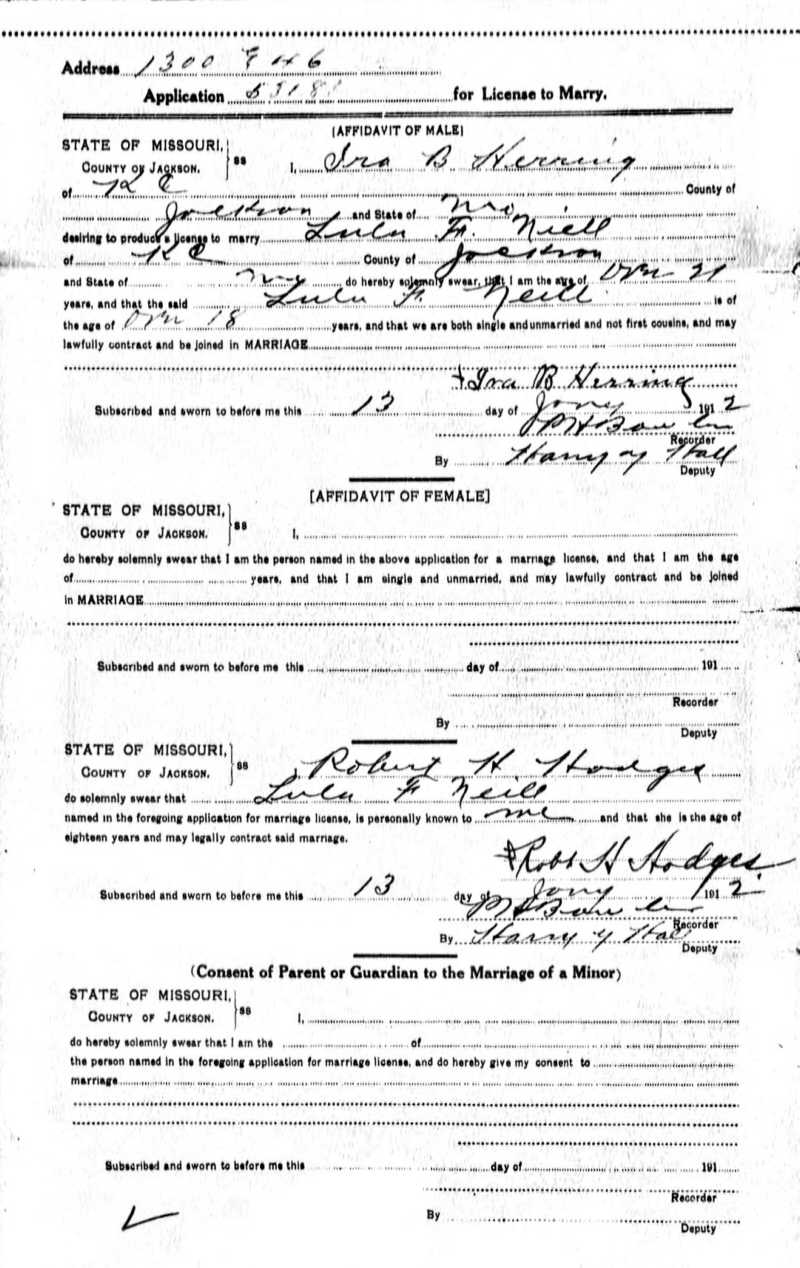 Address 1300 E 46
Application for License to Marry.
[AFFIDAVIT OF MALE]
STATE OF MISSOURI,
COUNTY OF JACKSON. } ss I, Ira B Herring
of K C County of
Jackson and State of Mo
desiring to produce a license to marry Lulu F. Niell
of K C County of Jackson
and State of Mo do hereby solemnly swear, that I am the age of Over 21
years, and that the said Lulu F. Neill is of
the age of Over 18 years, and that we are both single and unmarried and not first cousins, and may
lawfully contract and be joined in MARRIAGE
Ira B Herring
Subscribed and sworn to before me this 13 day of Jany 1912
Recorder
By Harry Y Hall
Deputy
[AFFIDAVIT OF FEMALE]
STATE OF MISSOURI,
COUNTY OF JACKSON. } ss I,
do hereby solemnly swear that I am the person named in the above application for a marriage license, and that I am the age
of years, and that I am single and unmarried, and may lawfully contract and be joined
in MARRIAGE
Subscribed and sworn to before me this day of 191
Recorder
By
Deputy
STATE OF MISSOURI,
COUNTY OF JACKSON. } ss Robert H Hodges
do solemnly swear that Lulu F Neill
named in the foregoing application for marriage license, is personally known to me and that she is the age of
eighteen years and may legally contract said marriage.
Robt H Hodges.
Subscribed and sworn to before me this 13 day of Jany 1912
Recorder
By Harry Y Hall
Deputy
(Consent of Parent or Guardian to the Marriage of a Minor)
STATE OF MISSOURI,
COUNTY OF JACKSON. } ss I,
do hereby solemnly swear that I am the of
the person named in the foregoing application for marriage license, and do hereby give my consent to
marriage
Subscribed and sworn to before me this day of 191
Recorder
By
Deputy